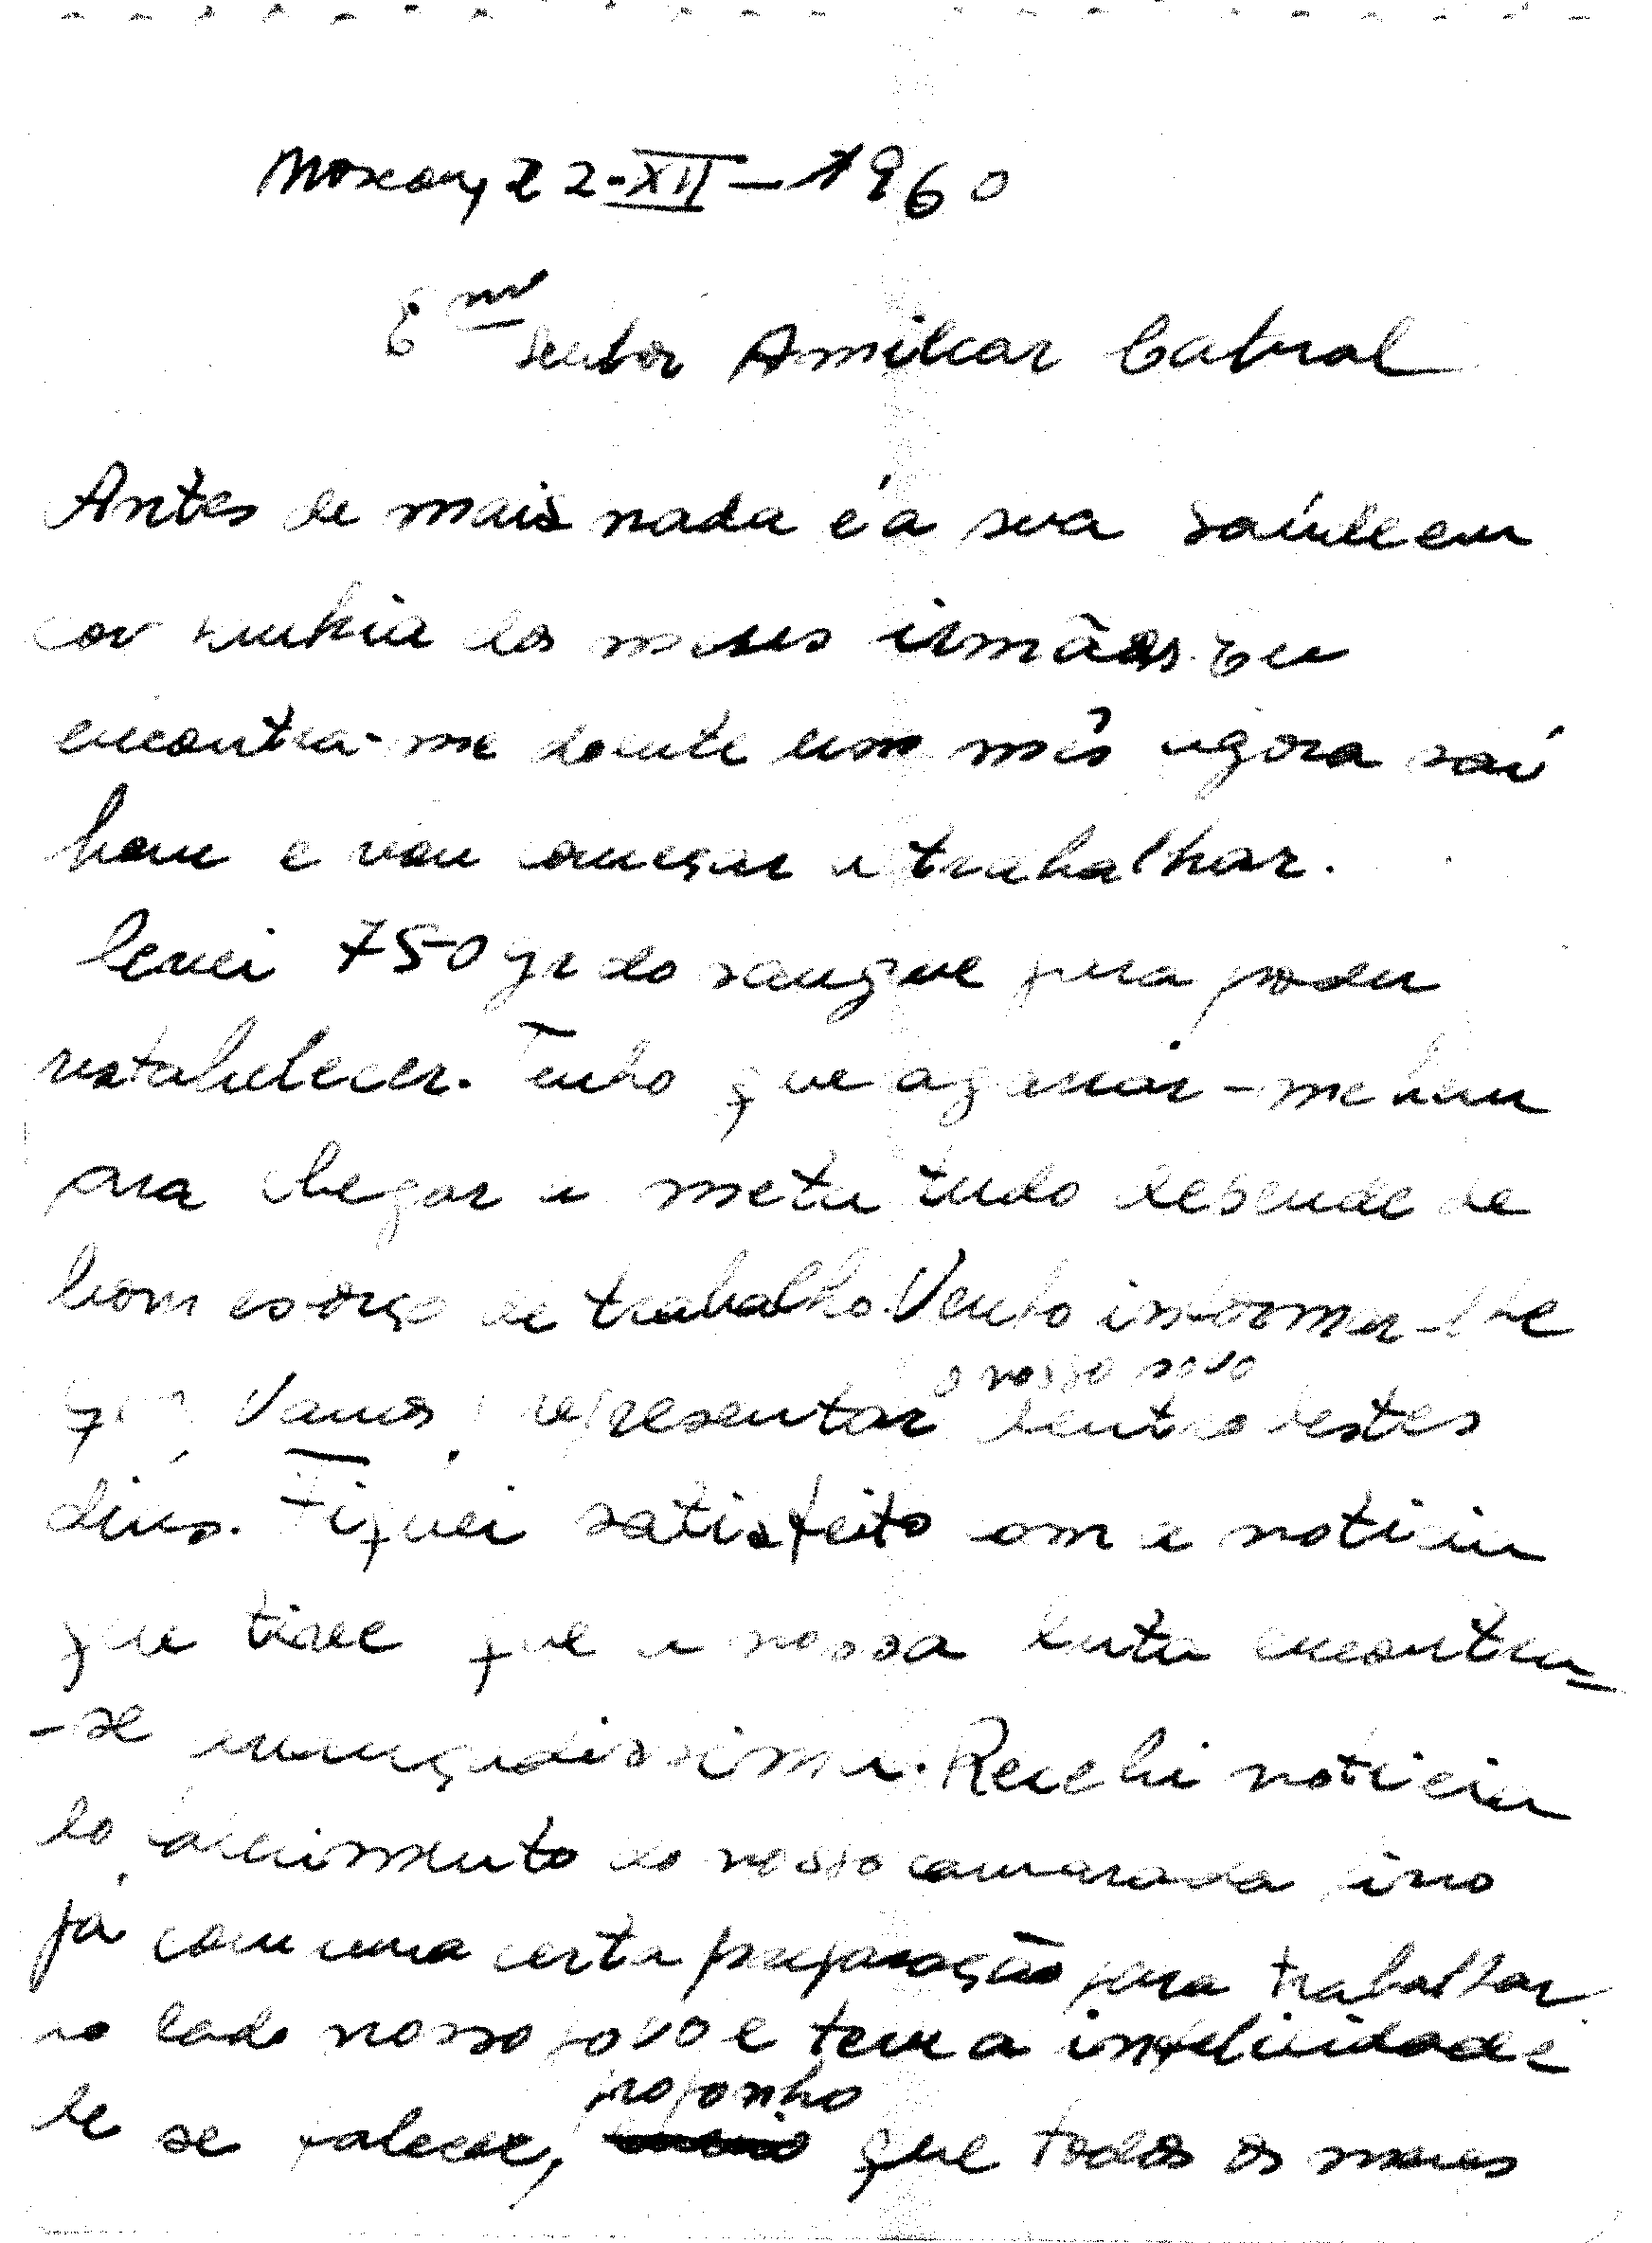 Moscou, 22-XII-1960
Emº Senhor Amilcar Cabral
Antes de mais nada é a sua saúde em
companhia dos meus irmãos. Eu
encontra-me doente um mês agora saí
bem e vou começar a trabalhar.
levei 750 gr do sangue para poder
restabelecer. Tenho que agarrar-me bem
para chegar a meta tudo depende de
bom esforço de trabalho. Venho informar-lhe
que Vamos representar o nosso povo dentro destes
dias. Fiquei satisfeito com a noticia
que tive que a nossa luta encontra-
-se avançadissima. Recebi noticia
do falecimento do nosso camarada
já com uma certa preparação para trabalhar
no lado nosso povo e teve a infelicidade
de se falecer, proponho que todos os meus